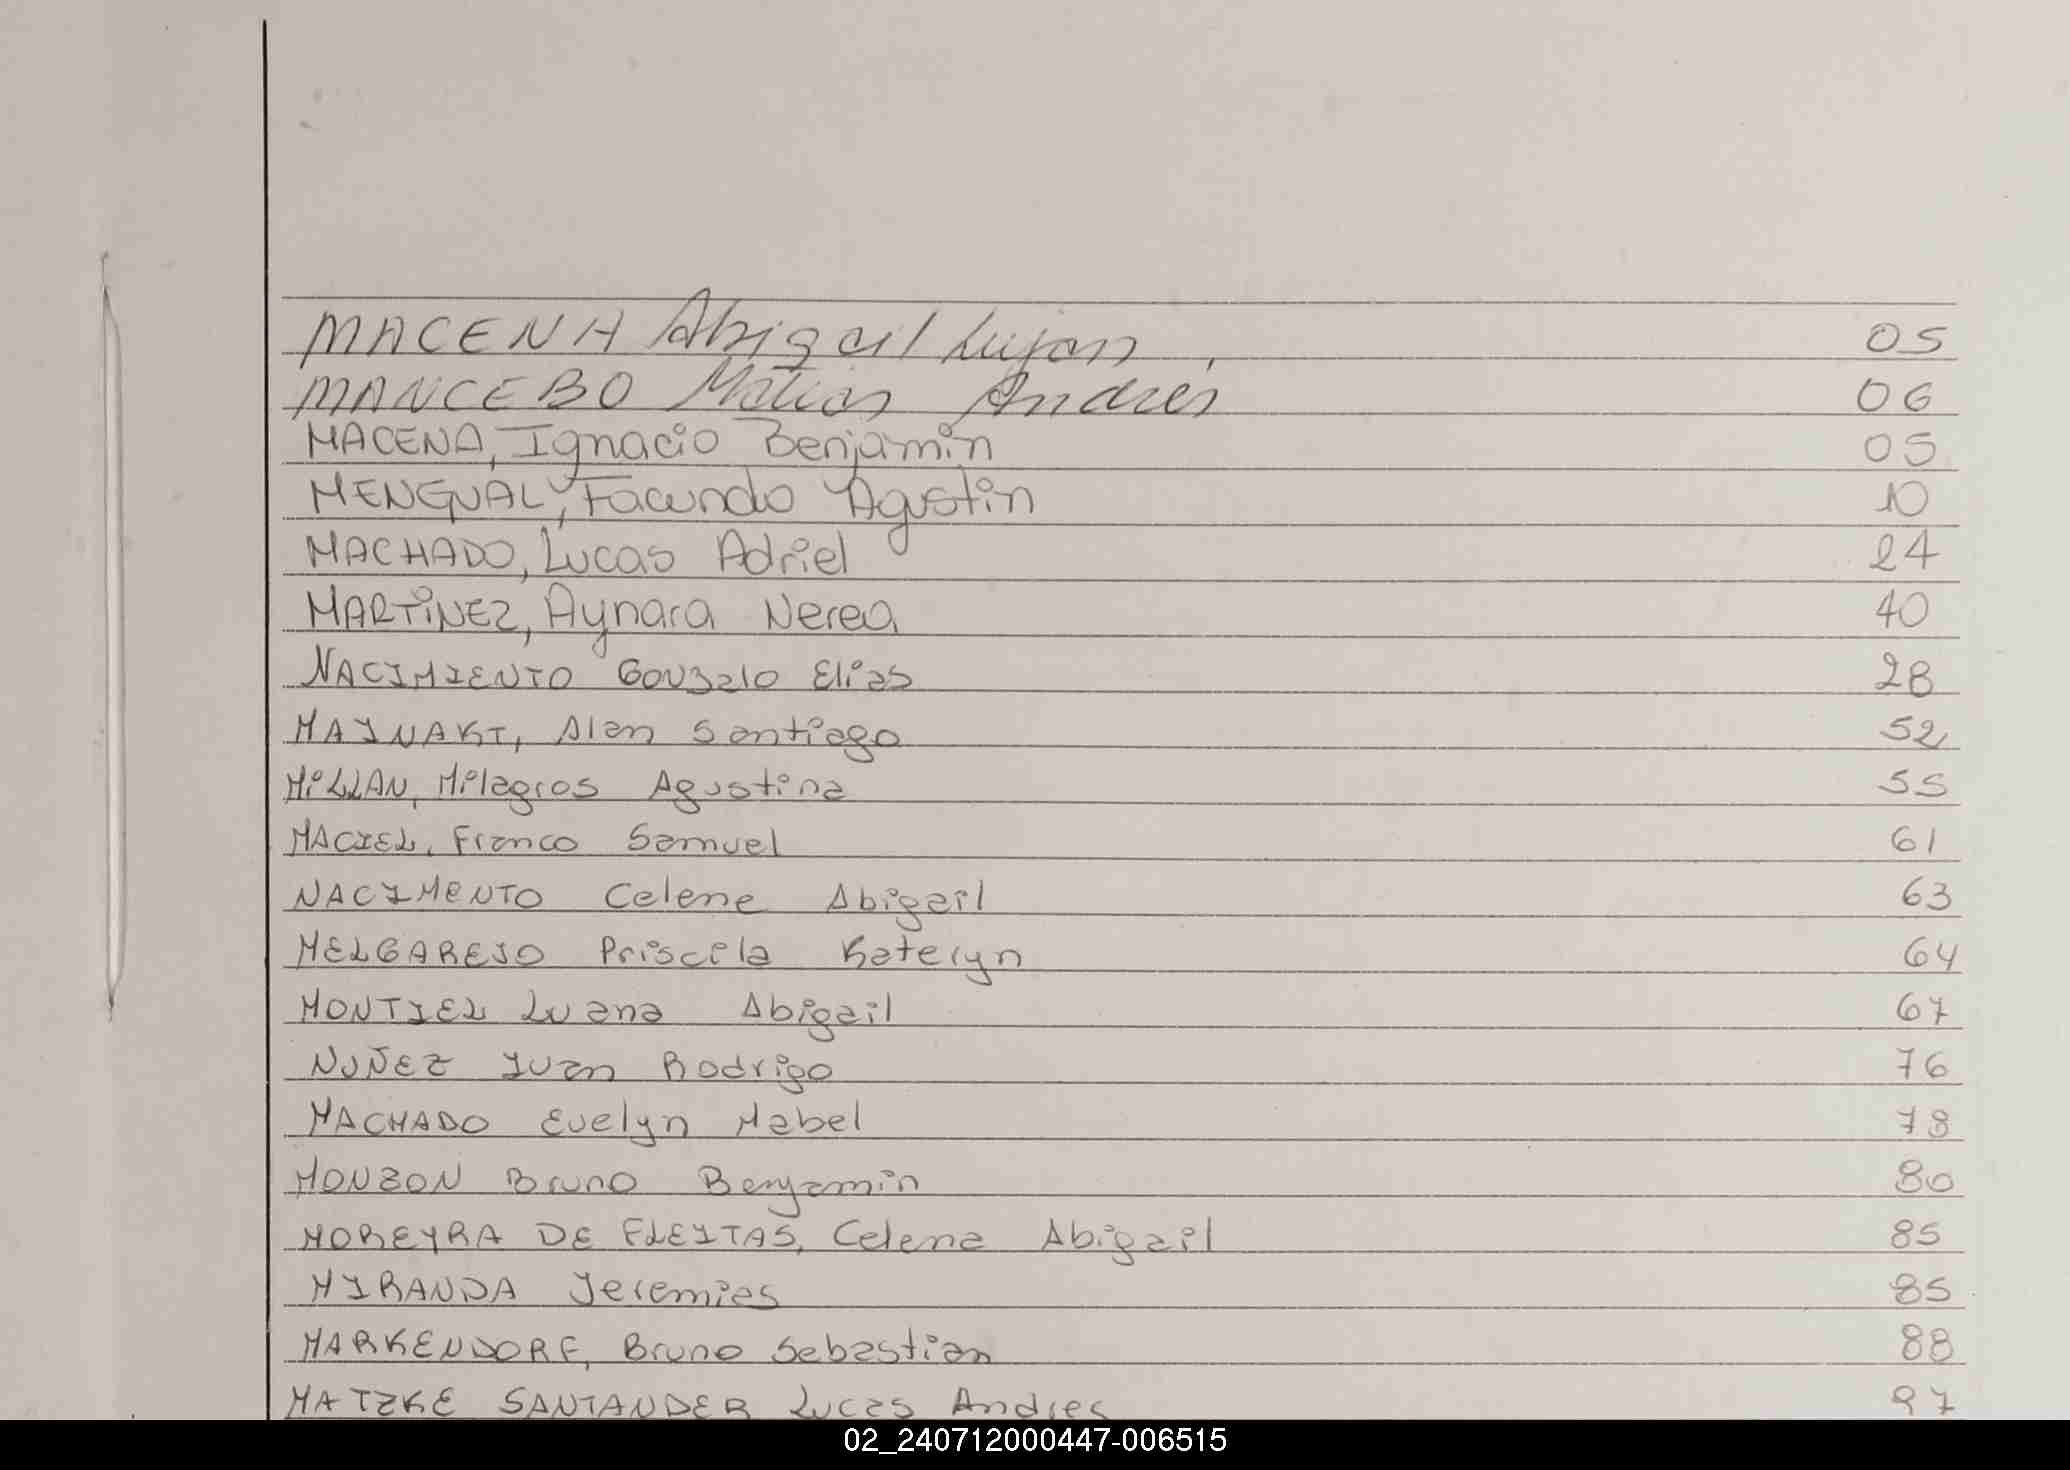 MACENA Abigail Lujan 05
MANCEBO Matias Andres 06
MACENA, Ignacio Benjamin 05
MENGUAL, Facundo Agustin 10
MACHADO, Lucas Adriel 24
MARTiNEZ, Aynara Nerea 40
NACIMIENTO Gonzalo Elias 28
MAINAKT, Alan Santiago 52
MiLLAN, Milagros Agustina 55
MACIEL, Franco Samuel 61
NACIMENTO Celene Abigail 63
MELGAREJO Priscila Kateryn 64
MONTIEL Luana Abigail 67
NUÑEZ Ivan Rodrigo 76
MACHADO Evelyn Mabel 78
MONZON Bruno Benyamin 80
MOREYRA DE FLEITAS, Celena Abigail 85
MIRANDA Jeremias 85
MARKENDORF, Bruno Sebastian 88
MATZKE SANTANDER Lucas Andres 97
02_240712000447-006515